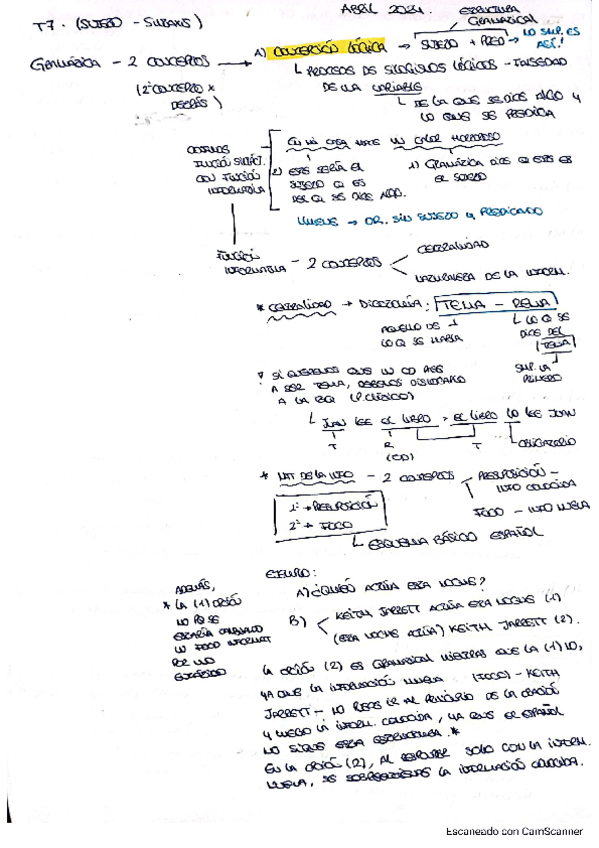 ABRIL 2024.
ESTRUCTURA
GRAMATICAL
T7. (SUJETO - SUBANS)
GRAMÁTICA - 2 CONCEPTOS → A) CONCEPCIÓN LÓGICA → SUJETO + PRED → LO SUP. ES
ASÍ!
(2º CONCEPTO x
DETRÁS)
PROCESOS DE SILOGISMOS LÓGICOS -
DE UNA VARIABLE
DE LA QUE SE DICE ALGO Y
LO QUE SE PREDICA
EN MI CASA HACE UN CALOR HORROROSO
FUNCIÓN SINTÁCT.
CON FUNCIÓN
INFORMATIVA
2) ESTE SERÍA EL
SUJETO Q ES
DEL Q SE DICE ALGO.
1) GRAMÁTICA DICE Q ESTE ES
EL SUJETO
LLUEVE → OR. SIN SUJETO Y PREDICADO
FUNCIÓN
INFORMATIVA - 2 CONCEPTOS
CENTRALIDAD
NATURALEZA DE LA INFORM.
* CENTRALIDAD → DICOTOMÍA: TEMA - REMA
AQUELLO DE
LO Q SE HABLA
LO Q SE
DICE DEL
TEMA
SUP. LA
PRIMERO
* SI QUEREMOS QUE UN CD PASE
A SER TEMA, DEBEMOS DISLOCARLO
A LA IZQ (P. CLÍTICO)
JUAN LEE EL LIBRO > EL LIBRO LO LEE JUAN
T R T OBLIGATORIO
(CD)
* NAT DE LA INFO - 2 CONCEPTOS
PRESUPOSICIÓN -
INFO CONOCIDA
FOCO - INFO NUEVA
1º → PRESUPOSICIÓN
2º → FOCO
ESQUEMA BÁSICO ESPAÑOL
EJEMPLO:
A) ¿QUIÉN ACTÚA ESTA NOCHE?
B) KEITH JARRETT ACTÚA ESTA NOCHE (1)
(ESTA NOCHE ACTÚA) KEITH JARRETT (2).
ADEMÁS,
* LA (1) OPCIÓN
NO PQ SE
ESTARÍA CAMBIANDO
UN FOCO INFORMAT
POR UNO
LA OPCIÓN (2) ES GRAMATICAL MIENTRAS QUE LA (1) NO,
YA QUE LA INFORMACIÓN NUEVA (FOCO) - KEITH
JARRETT - NO PUEDE IR AL PRINCIPIO DE LA ORACIÓN
Y LUEGO LA INFORM. CONOCIDA, YA QUE EL ESPAÑOL
NO SIGUE ESTA ESTRUCTURA. *
EN LA OPCIÓN (2), AL RESPONDER SOLO CON LA INFORM.
NUEVA, SE SOBREENTIENDE LA INFORMACIÓN CONOCIDA.
Escaneado con CamScanner